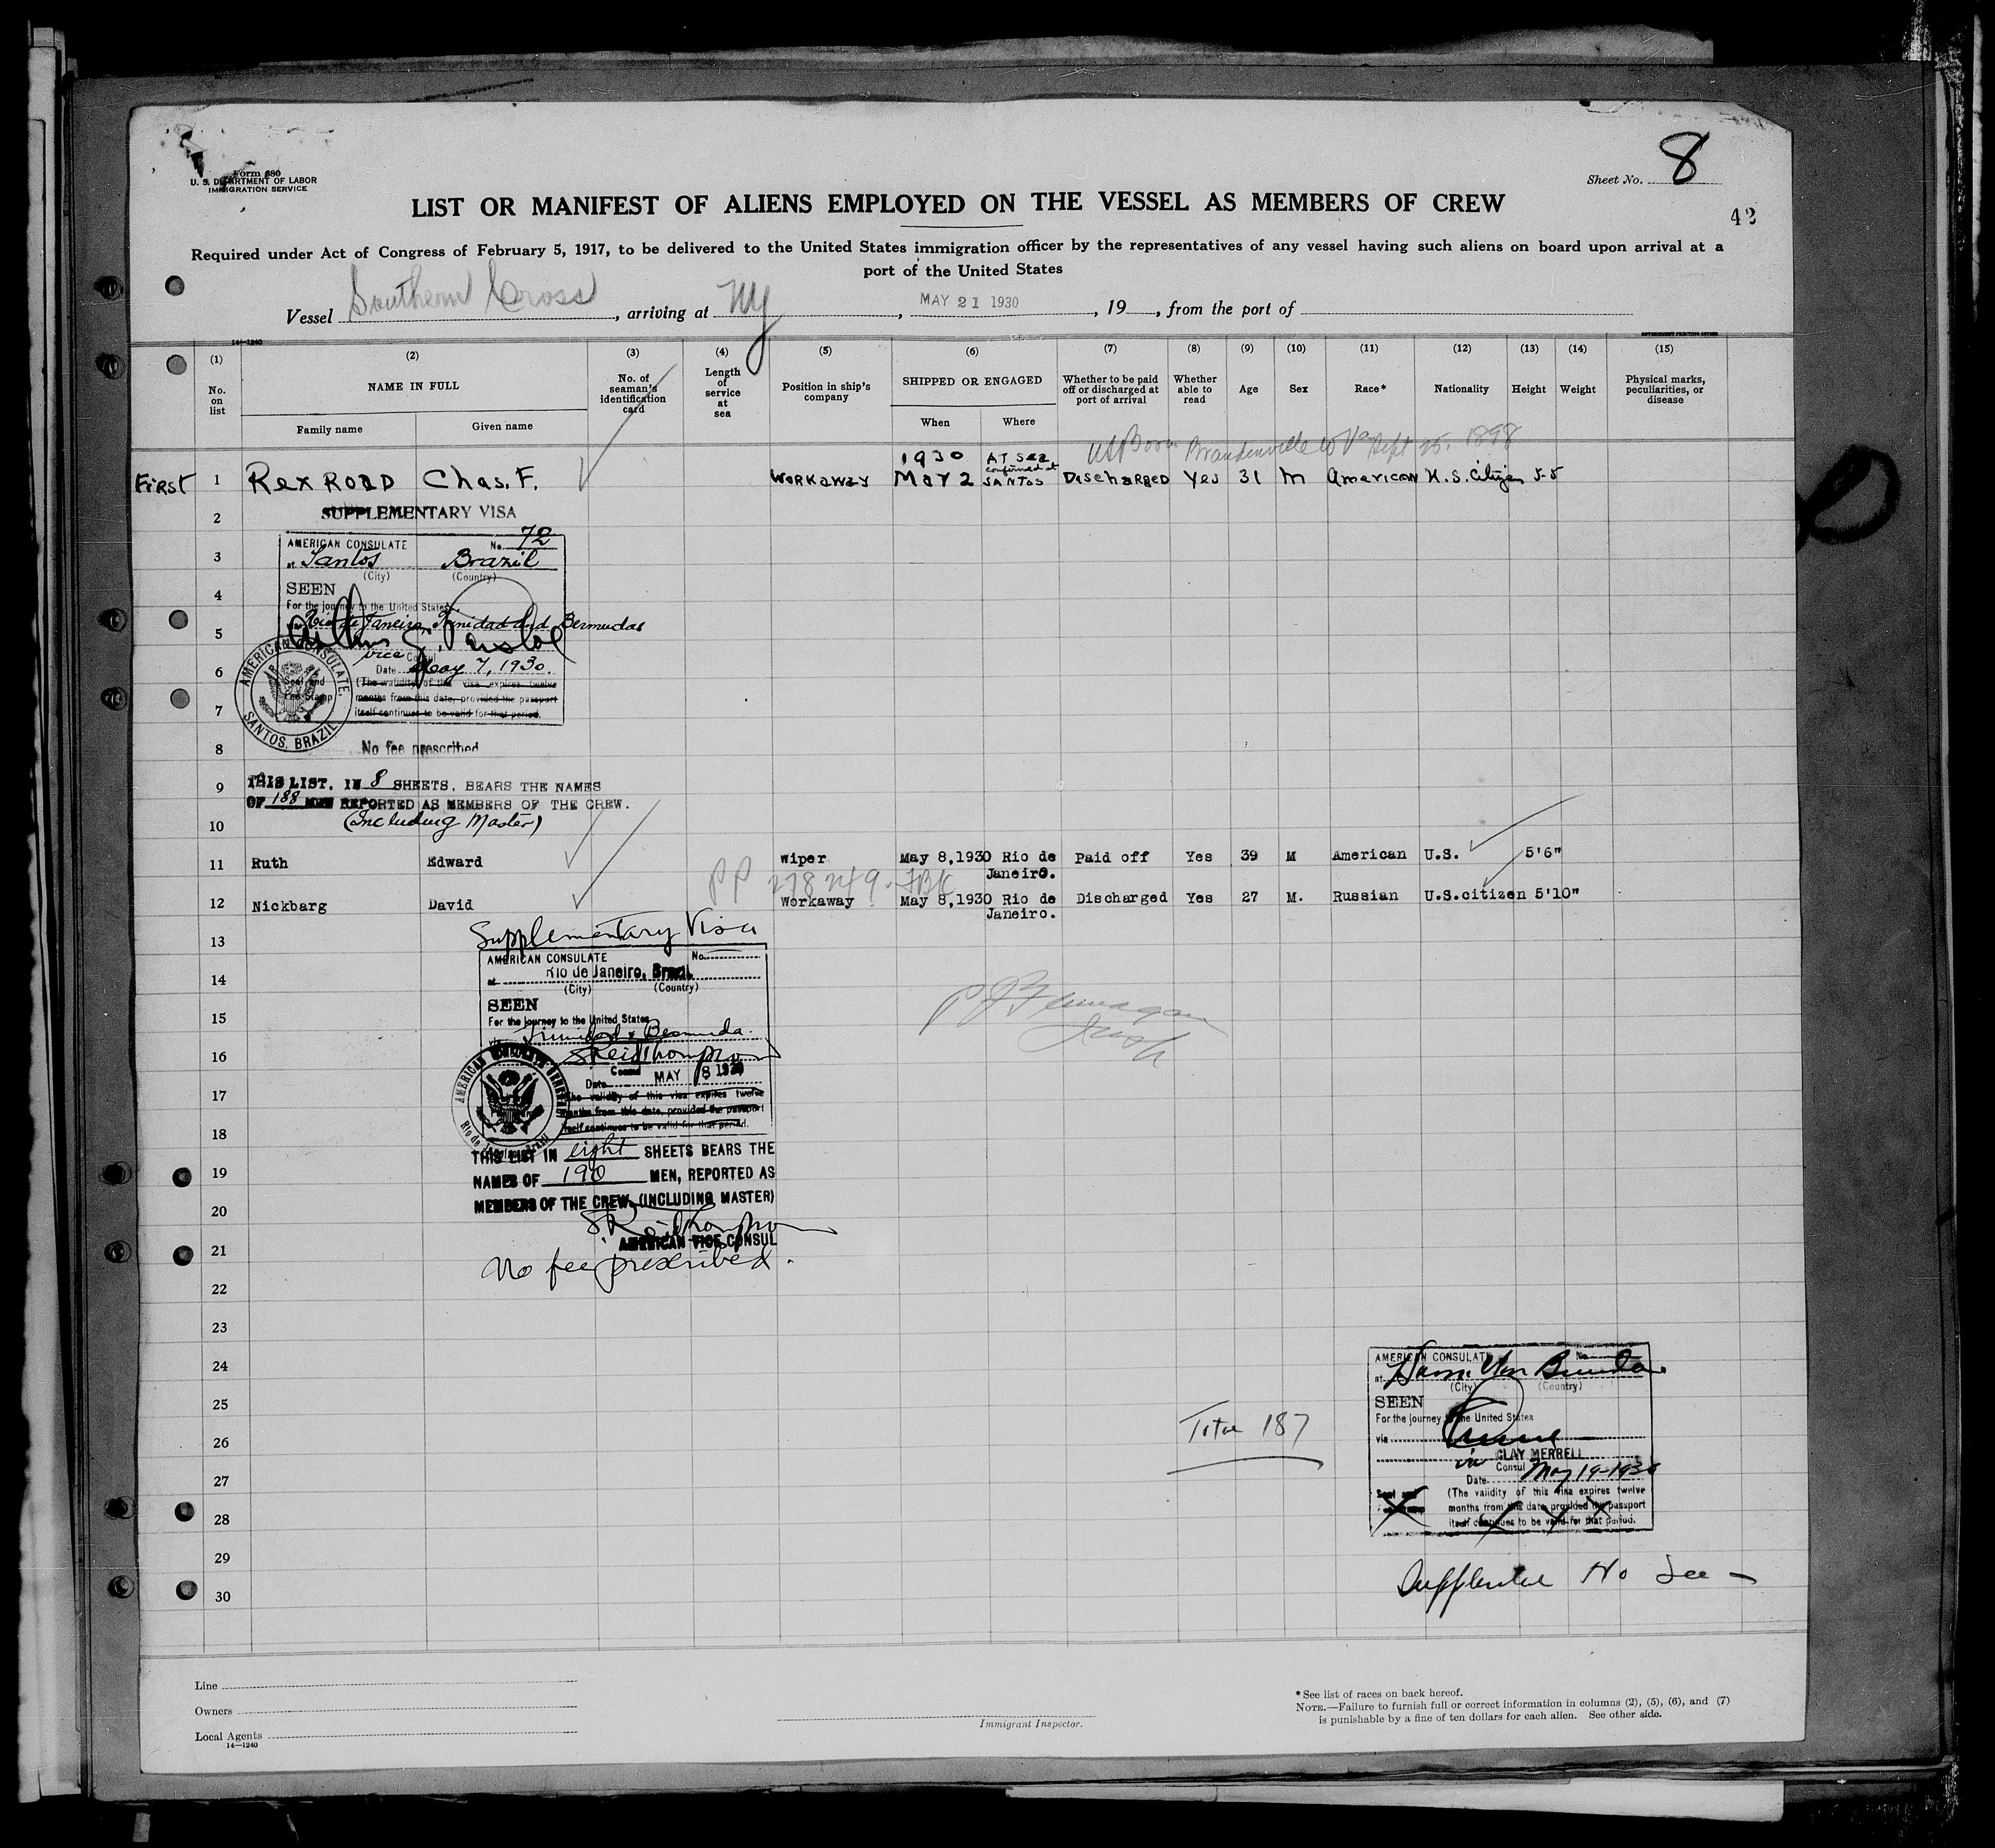 Form 680
U. S. DEPARTMENT OF LABOR
IMMIGRATION SERVICE
Sheet No. 8
LIST OR MANIFEST OF ALIENS EMPLOYED ON THE VESSEL AS MEMBERS OF CREW
42
Required under Act of Congress of February 5, 1917, to be delivered to the United States immigration officer by the representatives of any vessel having such aliens on board upon arrival at a
port of the United States
Vessel Southern Cross, arriving at NY, MAY 21 1930, 19 , from the port of
14—1240
GOVERNMENT PRINTING OFFICE
(1) (2) (3) (4) (5) (6) (7) (8) (9) (10) (11) (12) (13) (14) (15)
No. on list
NAME IN FULL
Family name
Given name
No. of seaman's identification card
Length of service at sea
Position in ship's company
SHIPPED OR ENGAGED
When
Where
Whether to be paid off or discharged at port of arrival
Whether able to read
Age
Sex
Race*
Nationality
Height
Weight
Physical marks, peculiarities, or disease
US Born Brandonville W Va Sept 25. 1898
First 1 Rex ROAD Chas. F. Workaway 1930 May 2 AT Sea confirmed at SANTOS Discharged Yes 31 M American U.S. Citizen 5-5
2
SUPPLEMENTARY VISA
3
AMERICAN CONSULATE No. 72
at Santos Brazil
(City) (Country)
4
SEEN
For the journey to the United States
5
via Rio de Janeiro, Trinidad and Bermudas
6
vice Consul
Date May 7, 1930.
(The validity of this visa expires twelve
months from this date, provided the passport
7
itself continues to be valid for that period.
AMERICAN CONSULATE, SANTOS, BRAZIL
8
No fee prescribed
9
THIS LIST, IN 8 SHEETS, BEARS THE NAMES
OF 188 MEN REPORTED AS MEMBERS OF THE CREW.
10
(Including Master)
11 Ruth Edward Wiper May 8,1930 Rio de Janeiro. Paid off Yes 39 M American U.S. 5'6"
PP 278249.
12 Nickbarg David Workaway May 8,1930 Rio de Janeiro. Discharged Yes 27 M. Russian U.S.citizen 5'10"
13
Supplementary Visa
AMERICAN CONSULATE No.
14
at Rio de Janeiro, Brazil
(City) (Country)
SEEN
15
For the journey to the United States
via Trinidad & Bermuda.
16
S Reid Thompson
Consul
Date MAY 8 1930
17
The validity of this visa expires twelve
months from this date, provided the passport
18
itself continues to be valid for that period.
THIS LIST IN eight SHEETS BEARS THE
19
NAMES OF 190 MEN, REPORTED AS
MEMBERS OF THE CREW, (INCLUDING MASTER)
20
S. Reid Thompson
AMERICAN VICE CONSUL
21
No fee prescribed.
22
23
24
AMERICAN CONSULATE No.
at Hamilton Bermuda
(City) (Country)
25
SEEN
For the journey to the United States
via
Total 187
26
CLAY MERRELL
Consul
27
Date May 19-1930
(The validity of this visa expires twelve
28
months from this date provided the passport
itself continues to be valid for that period.
29
No fee —
30
Line
Owners
Local Agents
14—1240
Immigrant Inspector.
* See list of races on back hereof.
NOTE.—Failure to furnish full or correct information in columns (2), (5), (6), and (7)
is punishable by a fine of ten dollars for each alien. See other side.